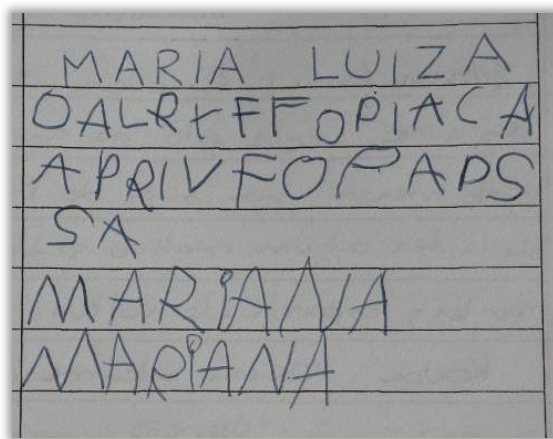 MARIA LUIZA
OALRXFFOPIACA
APRIVFOPADS
SA
MARIANA
MARIANA